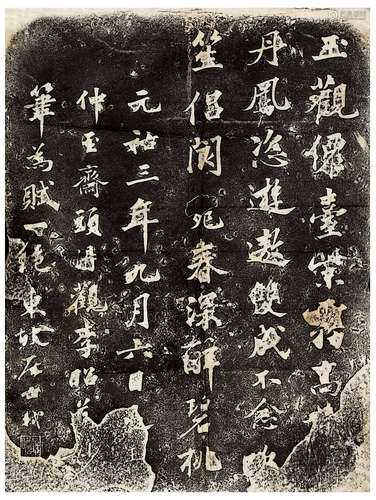 玉觀僊臺紫霧高
丹鳳恣遊遨雙成不念
笙侶閬苑春深醉碧桃
元祐三年九月六日
仲至齋頭時觀李昭
筆為賦一絕東坡居士軾